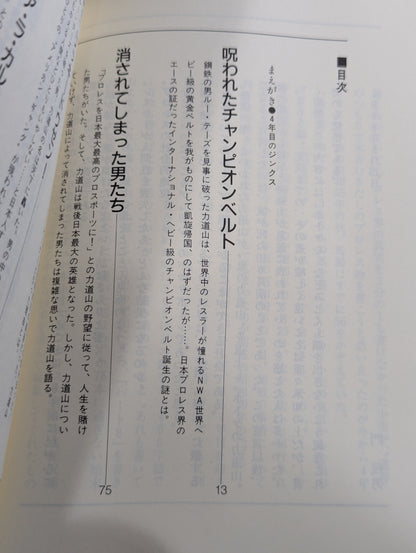 ■目次
まえがき●4年目のジンクス
呪われたチャンピオンベルト
13
鋼鉄の男ルー・テーズを見事に破った力道山は、世界中のレスラーが憧れるNWA世界ヘ
ビー級の黄金ベルトを我がものにして凱旋帰国、のはずだったが……。日本プロレス界の
エースの証だったインターナショナル・ヘビー級のチャンピオンベルト誕生の謎とは。
消されてしまった男たち
75
「プロレスを日本最大最高のプロスポーツに！」との力道山の野望に従って、人生を賭け
た男たちがいた。そして、力道山は戦後日本最大の英雄となった。しかし、力道山につい
ていけず、力道山によって消されてしまった男たちは複雑な思いで力道山を語る。